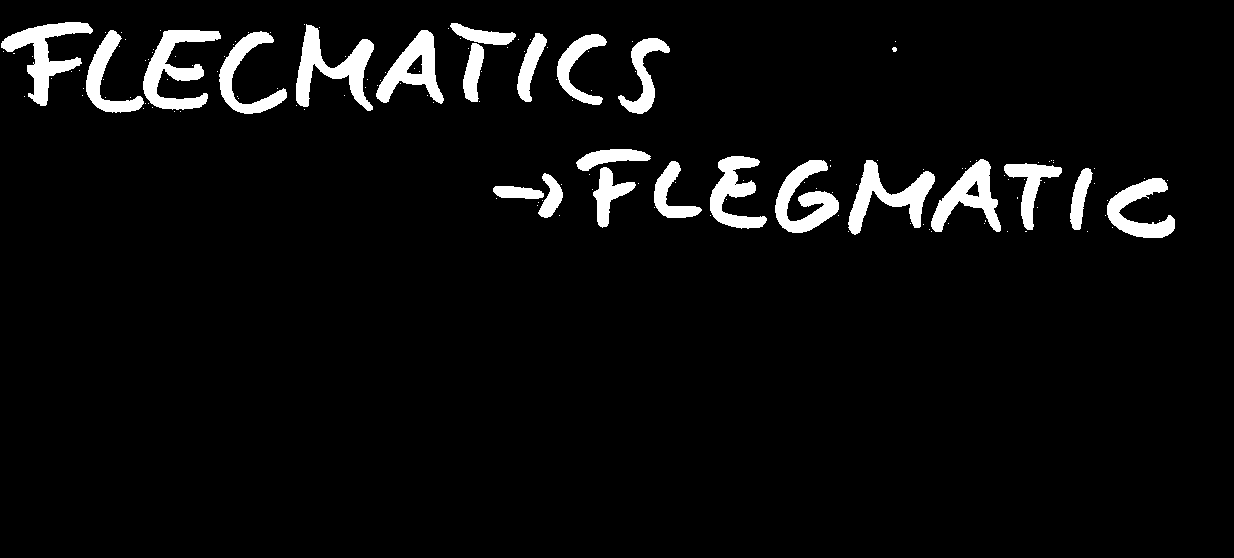 FLECMATICS
→FLEGMATIC